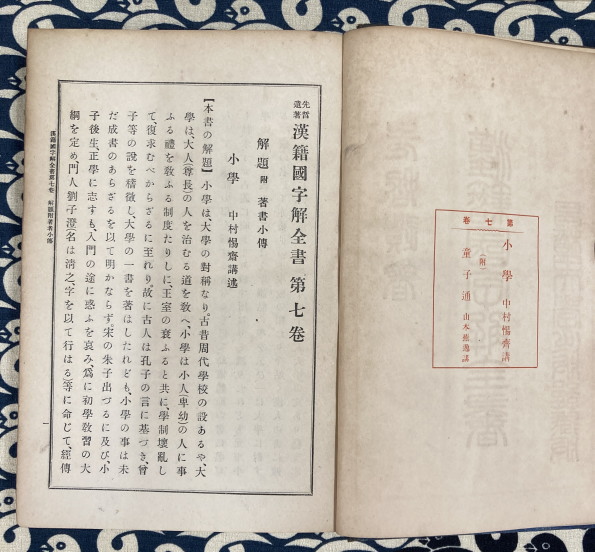 第七卷
小學 中村惕齋講
(附)
童子通 山本蕉逸講
先哲遺著 漢籍國字解全書 第七卷
解題 附 著書小傳
小學 中村惕齋講述
【本書の解題】小學は、大學の對稱なり。古昔周代學校の設あるや、大
學は、大人(尊長)の人を治むる道を敎へ、小學は小人(卑幼)の人に事
ふる禮を敎ふる制度たりしに、王室の衰ふると共に、學制壞亂し
て、復求むべからざるに至れり。故に古人は孔子の言に基づき、曾
子等の說を稽徵し、大學の一書を著はしたれども、小學の事は未
だ成書のあらざるを以て明かならず。宋の朱子出づるに及び、小
子後生、正學に志すも、入門の途に惑ふを哀み、爲に初學敎習の大
綱を定め、門人劉子澄(名は淸之、字を以て行はる)等に命じて、經傳
漢籍國字解全書第七卷 解題附著者小傳
一